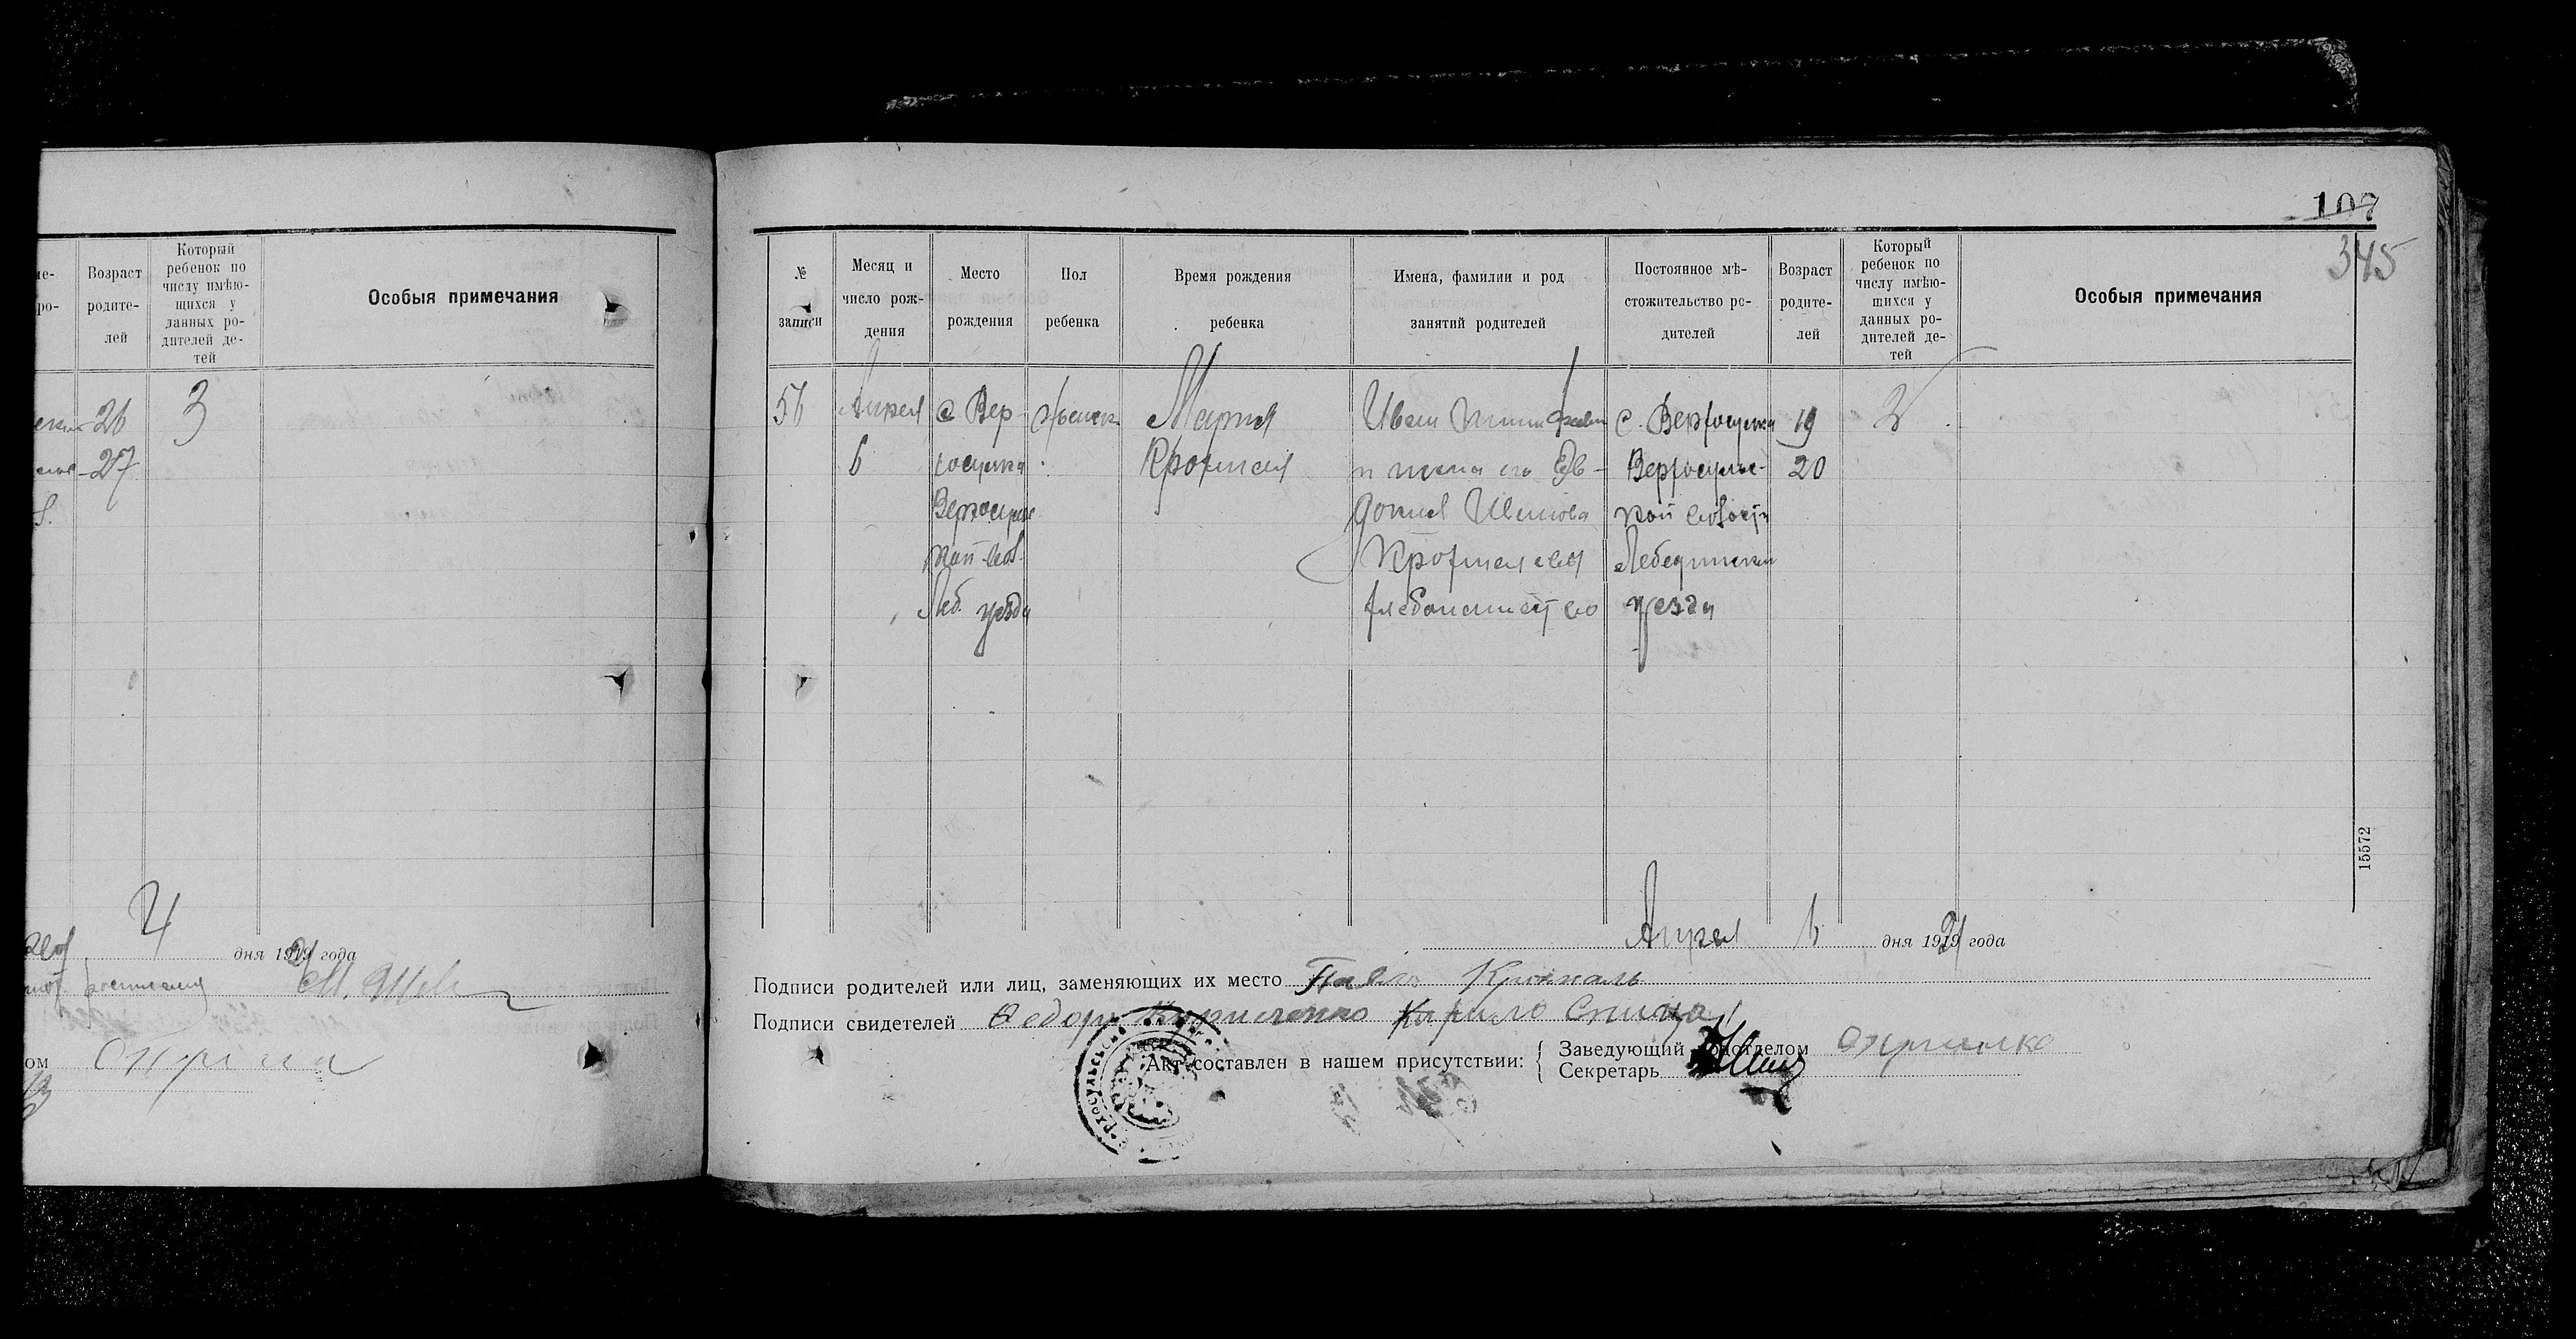 107
345
Возраст родите-лей
Который ребенок по числу имѣю-щихся у данных ро-дителей де-тей
Особыя примечания
26
27
3
4
дня 1921 года
№ записи
Месяц и число рож-дения
Место рождения
Пол ребенка
Время рождения ребенка
Имена, фамилии и род занятий родителей
Постоянное мѣ-стожительство ро-дителей
Возраст родите-лей
Который ребенок по числу имѣю-щихся у данных ро-дителей де-тей
Особыя примечания
56
Апрел
6
с Вер-
хосулка
Верхосулс-
кой вол.
Леб. уезда
женск
Мария
Крохмал
Иван
и жена его Ев-
докия Иванова
хлебопашество
с. Верхосулка
Верхосулс-
кой волости
Лебединский
уезда
19
20
2
15572
Апрел 6 дня 1921 года
Подписи родителей или лиц, заменяющих их место Павло Крохмаль
Подписи свидетелей Федор Кириленко Кирило Спица
Акт составлен в нашем присутствии:
Заведующий подотделом
Секретарь